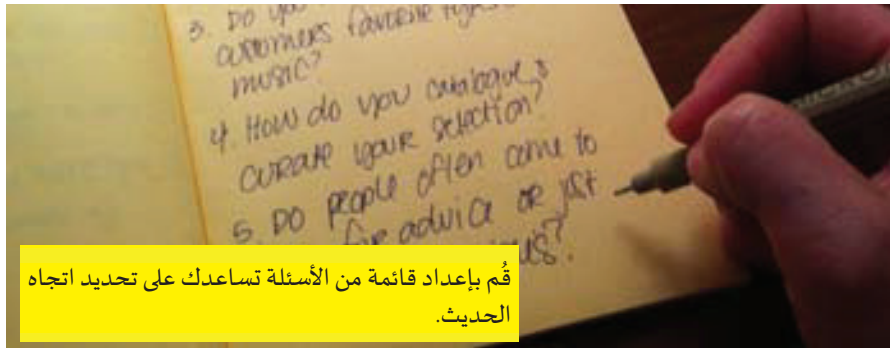 3. DO you
customers favorite
music?
4. HOW do you catalogue &
curate your selection?
5. DO people often come to
for advice or just
us?
قُم بإعداد قائمة من الأسئلة تساعدك على تحديد اتجاه
الحديث.